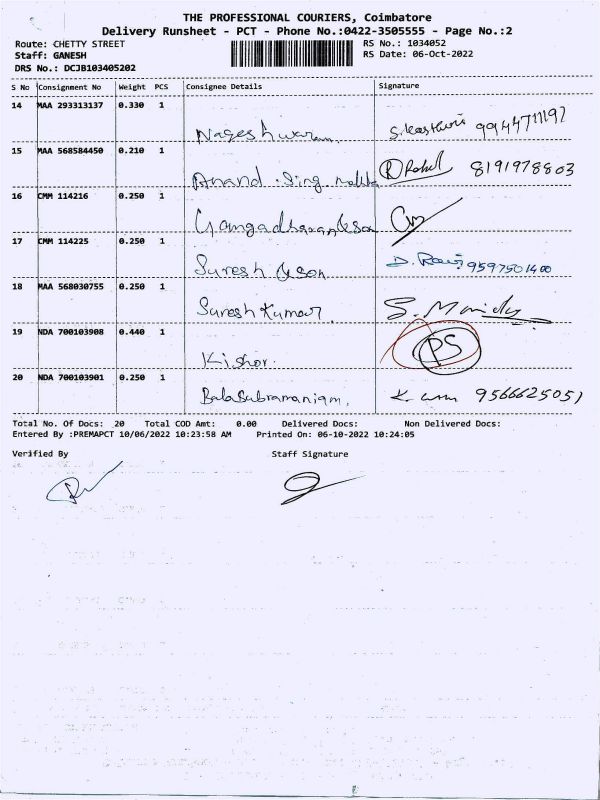 THE PROFESSIONAL COURIERS, Coimbatore
Delivery Runsheet - PCT - Phone No.:0422-3505555 - Page No.:2
Route: CHETTY STREET RS No.: 1034052
Staff: GANESH RS Date: 06-Oct-2022
DRS No.: DCJB103405202
S No Consignment No Weight PCS Consignee Details Signature
14 MAA 293313137 0.330 1
Nageshwaran.
15 MAA 568584450 0.210 1
Anand Sing 8191978803
16 CMM 114216 0.250 1
Gangadharan &son
17 CMM 114225 0.250 1
Suresh &son D. Ravi 9597501400
18 MAA 568030755 0.250 1
Suresh Kumar.
19 NDA 700103908 0.440 1
Kishor. PS
20 NDA 700103901 0.250 1
Balasubramaniam. K. 9566625051
Total No. Of Docs: 20 Total COD Amt: 0.00 Delivered Docs: Non Delivered Docs:
Entered By :PREMAPCT 10/06/2022 10:23:58 AM Printed On: 06-10-2022 10:24:05
Verified By Staff Signature